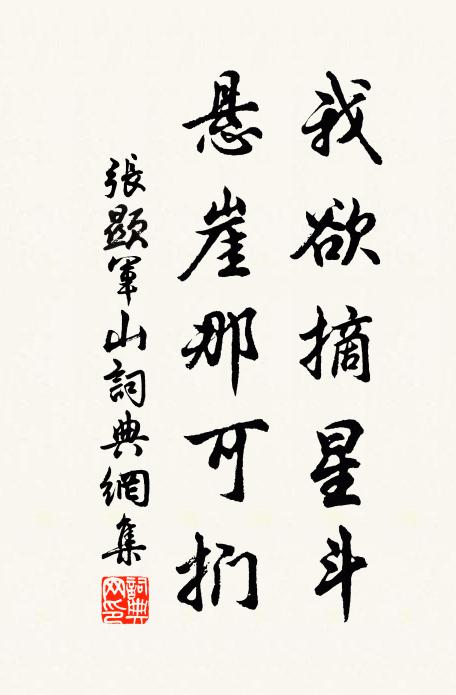 我欲摘星斗
悬崖那可扪
張顯軍山詞典網集
詞典網印